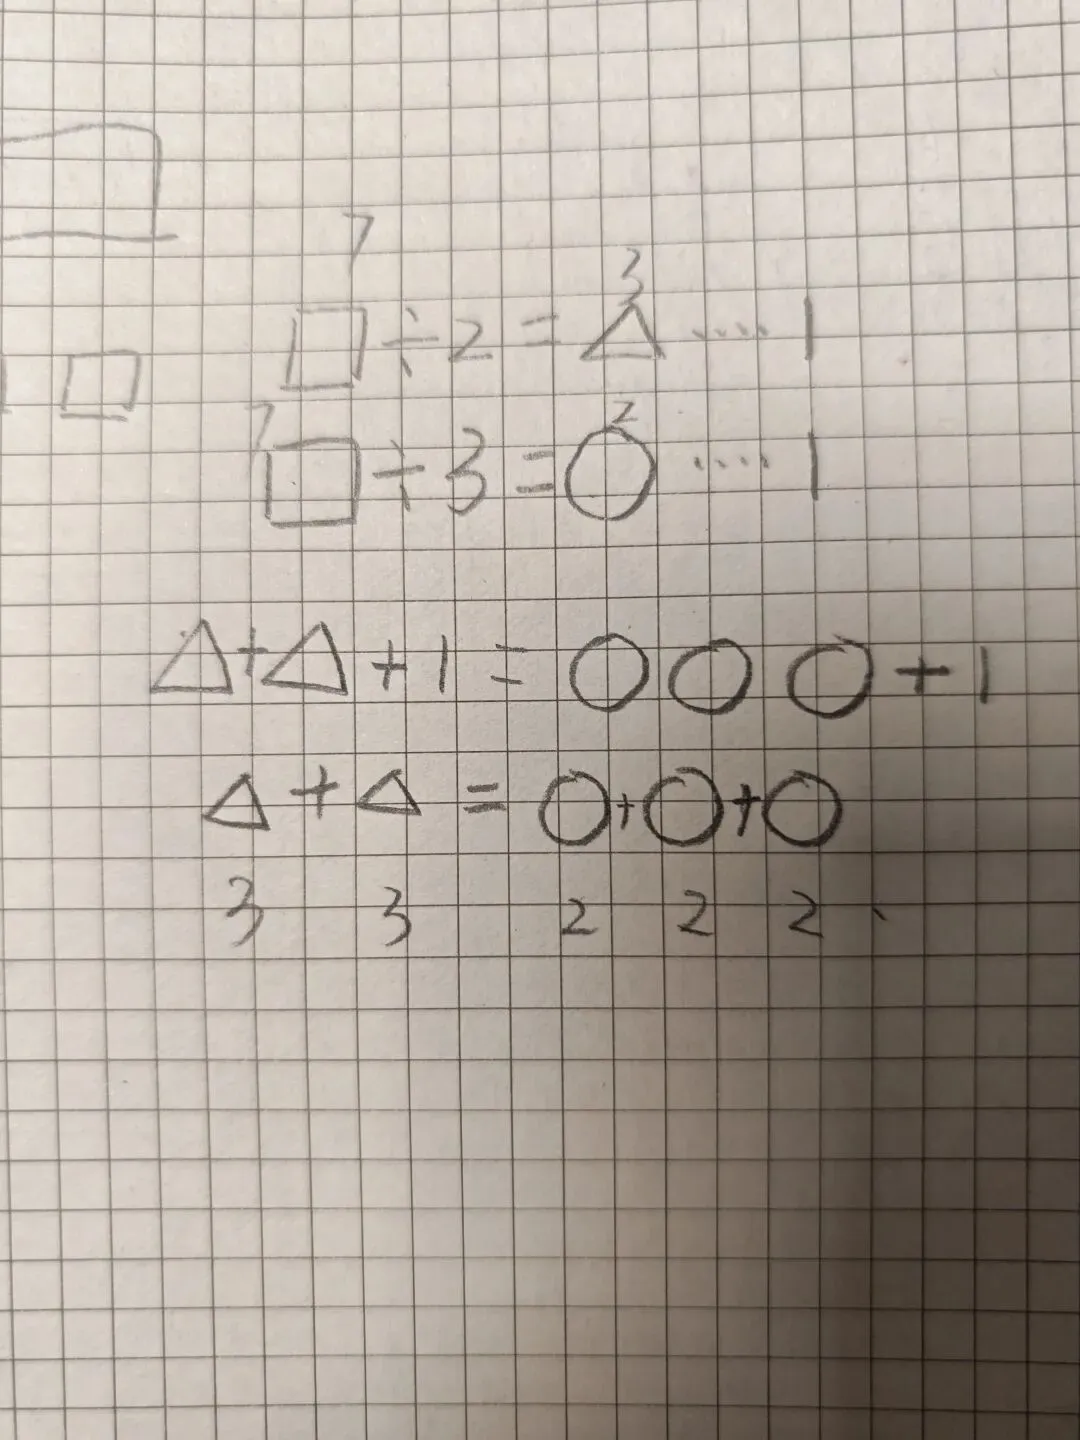 7
3
□÷2=△····1
7 2
□÷3=○····1
△+△+1=○○○+1
△+△=○+○+○
3 3 2 2 2